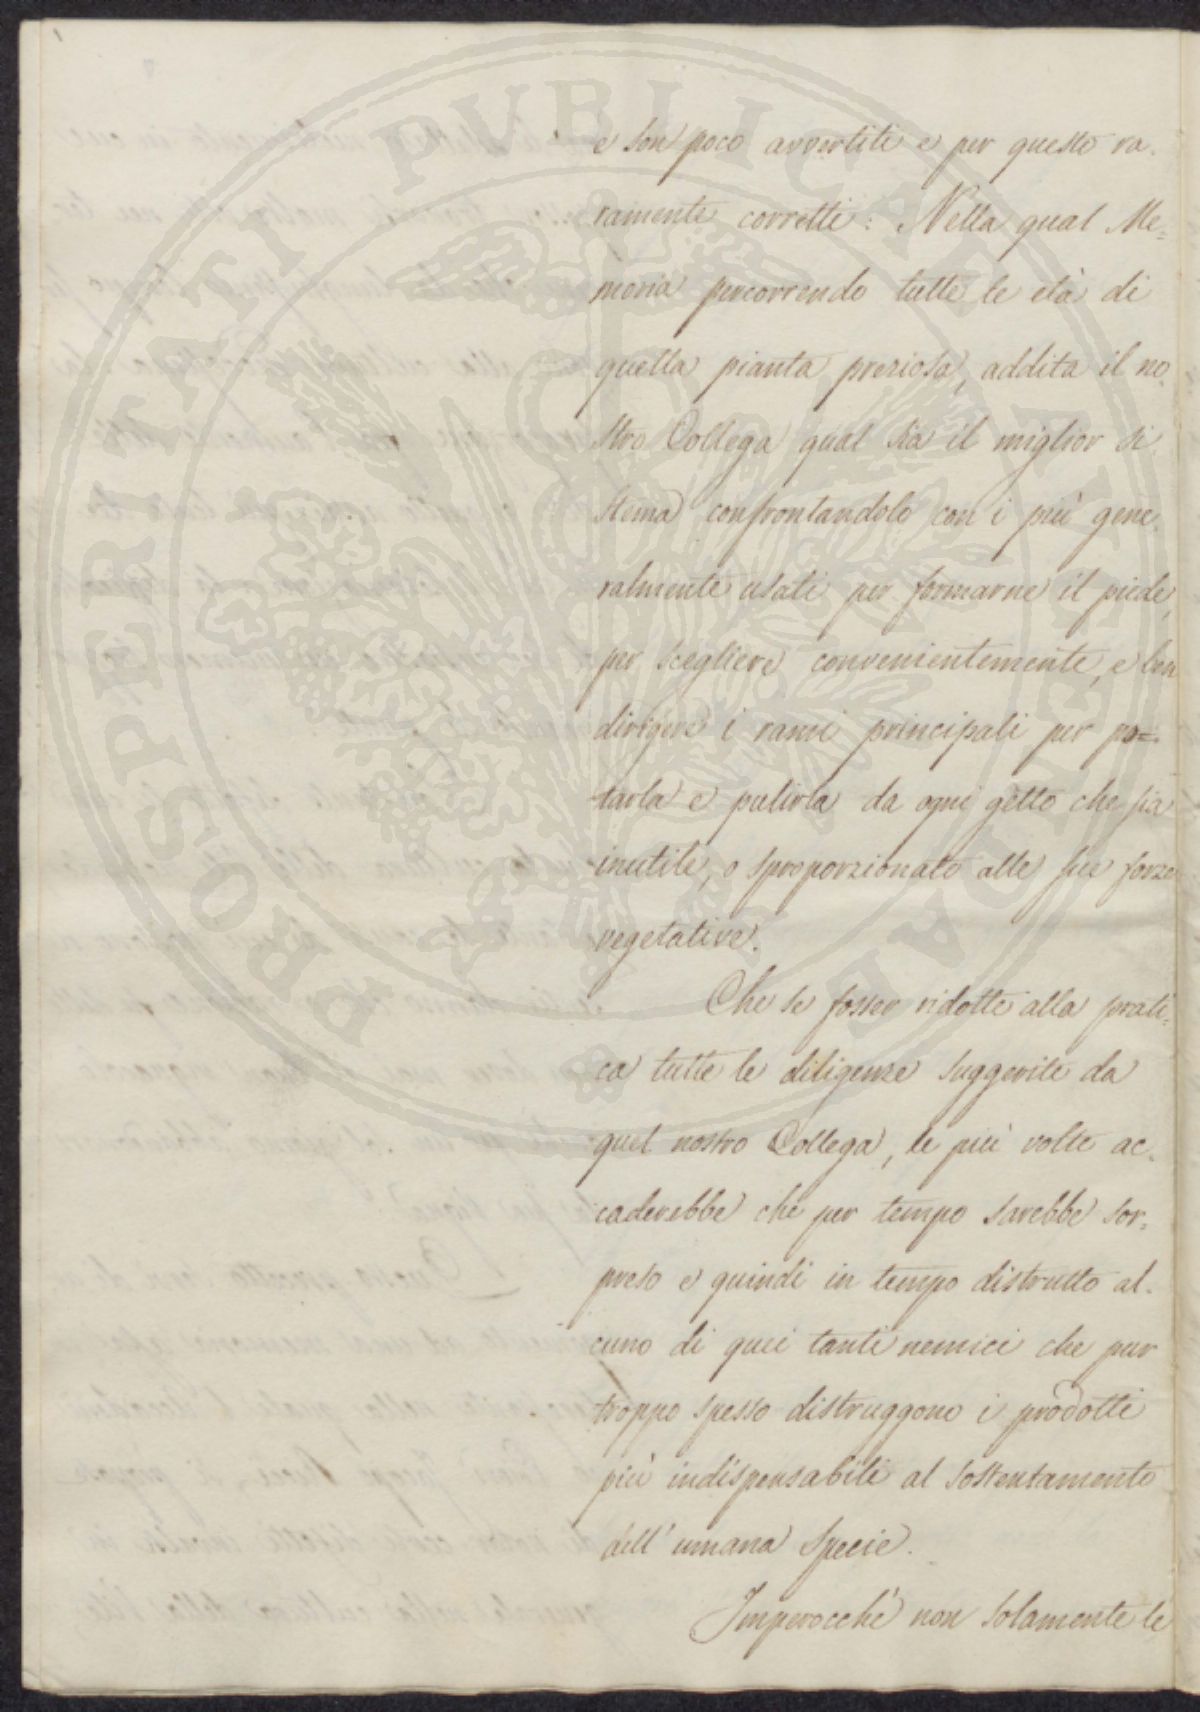 e son poco avvertiti e per questo ra-
ramente corretti: Nella qual Me=
moria percorrendo tutte le età di
quella pianta preziosa, addita il no-
stro Collega qual sia il miglior si-
stema confrontandolo con i più gene-
ralmente usati per formarne il piede,
per scegliere convenientemente, e ben
dirigere i rami principali per po=
tarla e pulirla da ogni getto che sia
inutile, o sproporzionato alle sue forze
vegetative.
Che se fosser ridotte alla prati=
ca tutte le diligenze suggerite da
quel nostro Collega, le più volte ac-
caderebbe che per tempo sarebbe sor-
preso e quindi in tempo distrutto al-
cuno di quei tanti nemici che pur
troppo spesso distruggono i prodotti
più indispensabili al sostentamento
dell'umana specie.
Imperocchè non solamente le
PROSPERITATI PUBLICAE AUGENDAE